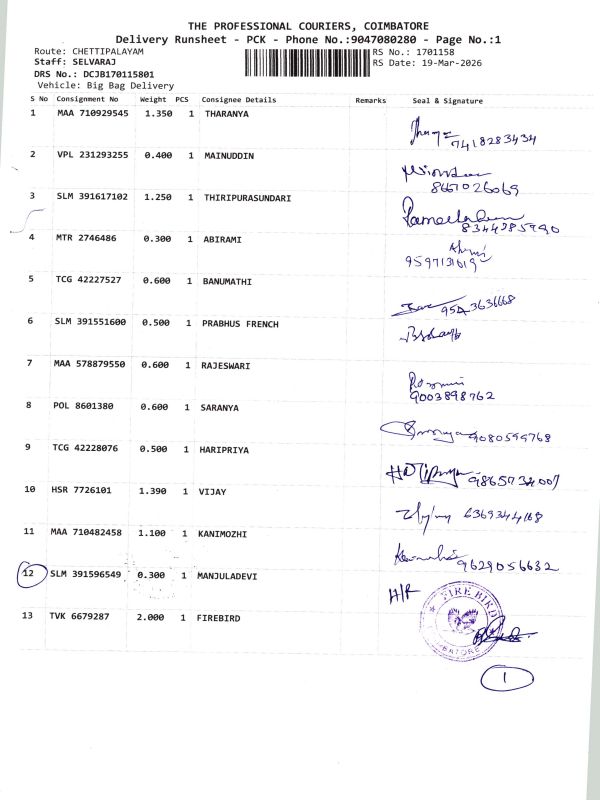 THE PROFESSIONAL COURIERS, COIMBATORE
Delivery Runsheet - PCK - Phone No.:9047080280 - Page No.:1
Route: CHETTIPALAYAM
RS No.: 1701158
Staff: SELVARAJ
RS Date: 19-Mar-2026
DRS No.: DCJB170115801
Vehicle: Big Bag Delivery
S No Consignment No Weight PCS Consignee Details Remarks Seal & Signature
1 MAA 710929545 1.350 1 THARANYA
7418283434
2 VPL 231293255 0.400 1 MAINUDDIN
8667026069
3 SLM 391617102 1.250 1 THIRIPURASUNDARI
8344285990
4 MTR 2746486 0.300 1 ABIRAMI
9597131619
5 TCG 42227527 0.600 1 BANUMATHI
6 SLM 391551600 0.500 1 PRABHUS FRENCH
7 MAA 578879550 0.600 1 RAJESWARI
9003898762
8 POL 8601380 0.600 1 SARANYA
9080599768
9 TCG 42228076 0.500 1 HARIPRIYA
Haripriya 9865734007
10 HSR 7726101 1.390 1 VIJAY
6369344168
11 MAA 710482458 1.100 1 KANIMOZHI
9629056632
12 SLM 391596549 0.300 1 MANJULADEVI
H/R
13 TVK 6679287 2.000 1 FIREBIRD
FIRE BIRD
1